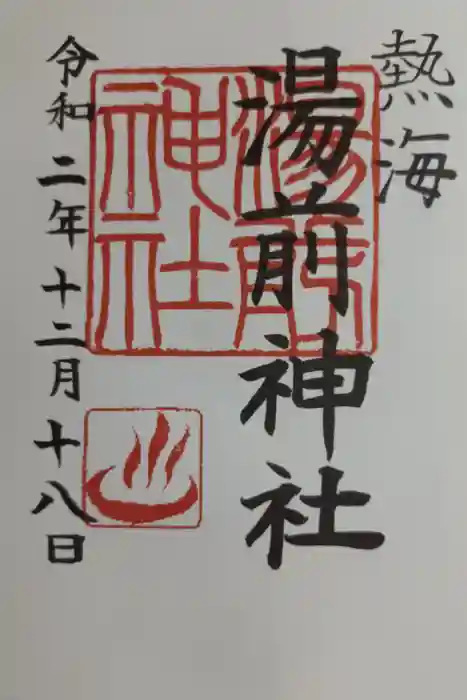 熱海
湯前神社
湯前神社
令和二年十二月十八日